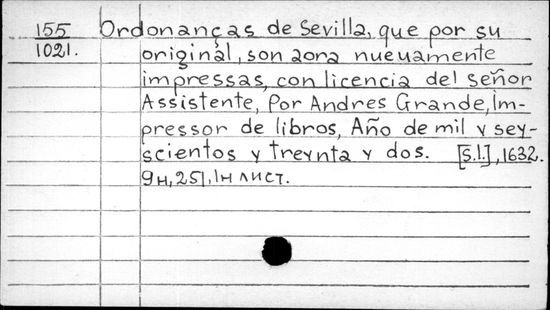 155 Ordonanças de Sevilla, que por su
1021. original, son aora nueuamente
impressas, con licencia del señor
Assistente, Por Andres Grande, im-
pressor de libros, Año de mil y sey-
scientos y treynta y dos. [s.l.], 1632.
9н, 251, 1н лист.